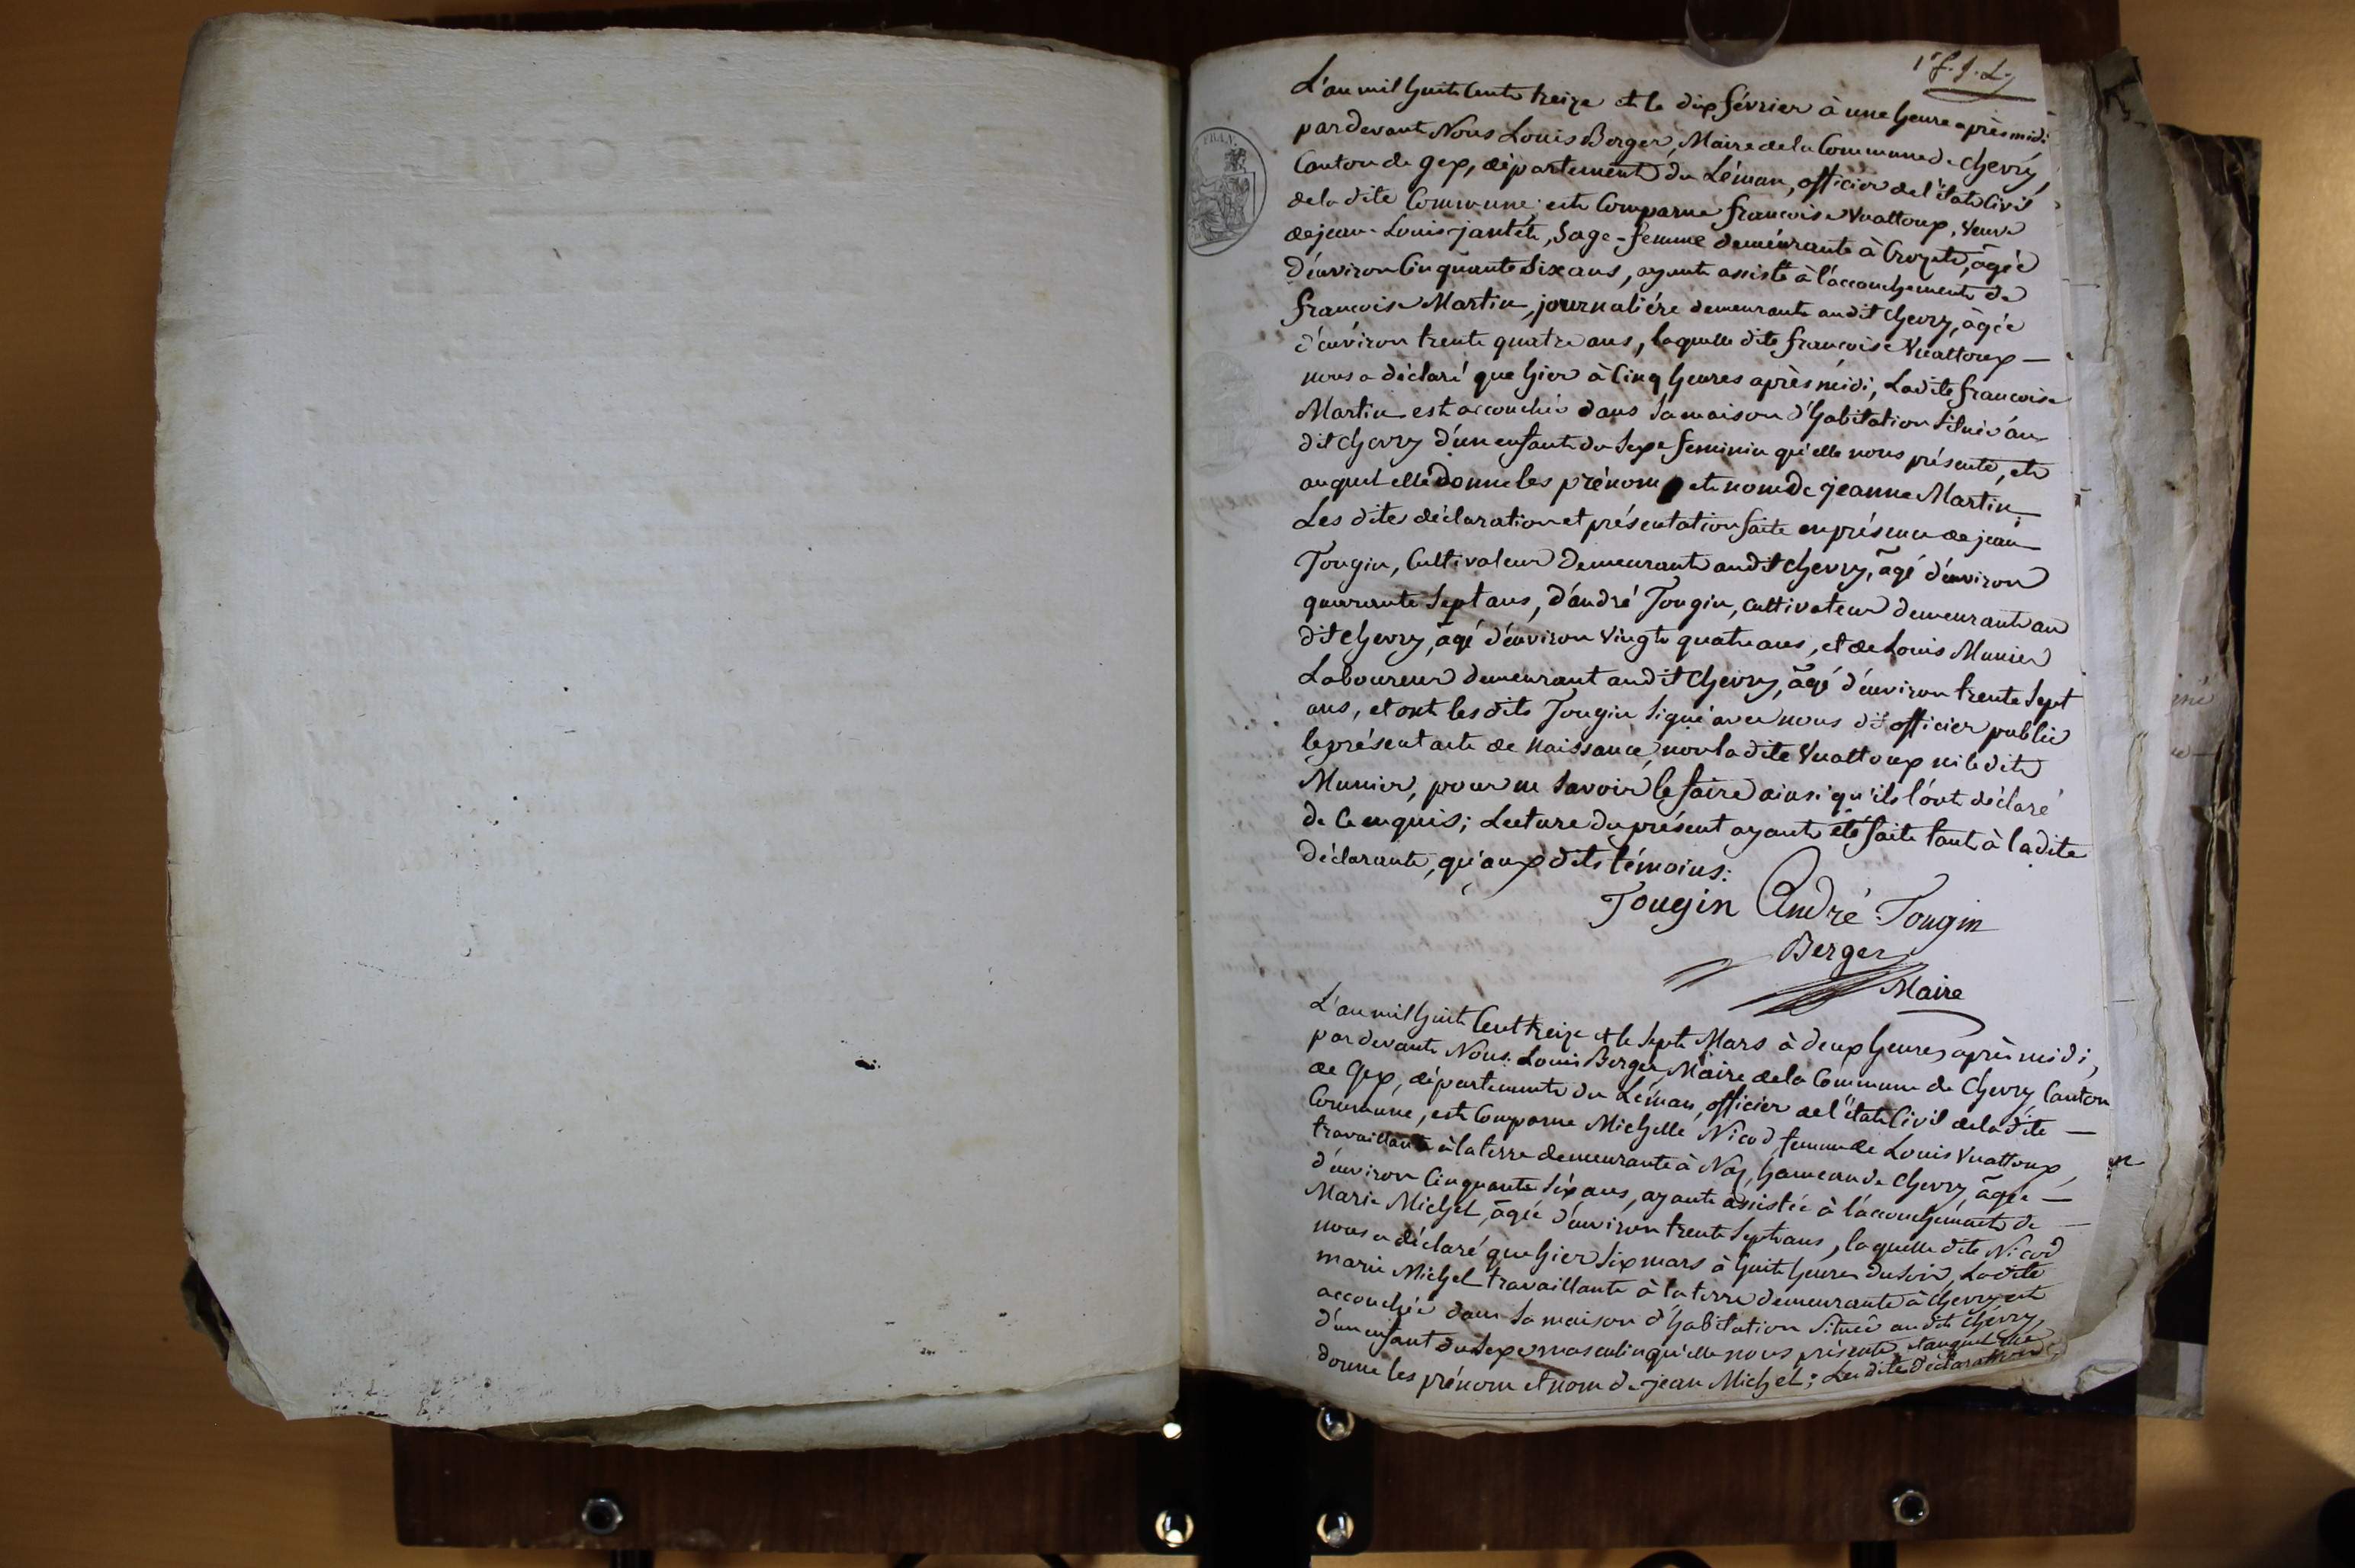 1er f. J. L.
L'an mil huit cents treize et le dix février à une heure après midi
par devant Nous Louis Berger, Maire de la Commune de Chevry,
Canton de gex, département du Léman, officier de l'état Civil
de la dite Commune, est Comparue françoise Vuattoux, veuve
de jean-Louis jantêt, Sage-femme demeurante à Crozêt, âgée
d'environ Cinquante Six ans, ayante assisté à l'accouchement de
françoise Martin, journalière demeurante audit Chevry, âgée
d'environ trente quatre ans, laquelle dite françoise Vuattoux —
nous a déclaré que hier à Cinq heures après midi, Ladite françoise
Martin est accouchée dans sa maison d'habitation Située au
dit Chevry d'un enfant du Sexe feminin qu'elle nous présente, et
auquel elle donne les prénom et nom de jeanne Martin;
Les dite déclaration et présentation faite en présence de jean
Tougin, Cultivateur demeurant audit Chevry, âgé d'environ
quarante Sept ans, d'andré Tougin, cultivateur demeurant au
dit Chevry, âgé d'environ vingt quatre ans, et de Louis Munier
Laboureur demeurant audit Chevry, âgé d'environ trente Sept
ans, et ont les dits Tougin Signé avec nous dit officier public
le présent acte de Naissance, non la dite Vuattoux ni le dit
Munier, pour ne savoir le faire ainsi qu'ils l'ont déclaré
de Ce enquis; Lecture du présent ayant été faite tant à la dite
déclarante, qu'aux dits témoins:
Tougin André Tougin
Berger
Maire
L'an mil huit Cent treize et le Sept Mars à deux heures après midi,
par devant Nous Louis Berger, Maire de la Commune de Chevry Canton
de Gex, département du Léman, officier de l'état Civil de la dite —
Commune, est Comparue Michelle Nicod femme de Louis Vuattoux,
travaillant à la terre demeurante à Naz, hameau de Chevry, âgée —
d'environ Cinquante Six ans, ayante assistée à l'accouchement de —
Marie Michel, âgée d'environ trente Sept ans, laquelle dite Nicod
nous a déclaré que hier Six mars à huit heures du Soir, Ladite
marie Michel travaillante à la terre demeurante à Chevry est
accouchée dans Sa maison d'habitation Située audit Chevry,
d'un enfant du Sexe masculin qu'elle nous présente, et auquel elle
donne les prénom et nom de jean Michel; Les dite déclaration